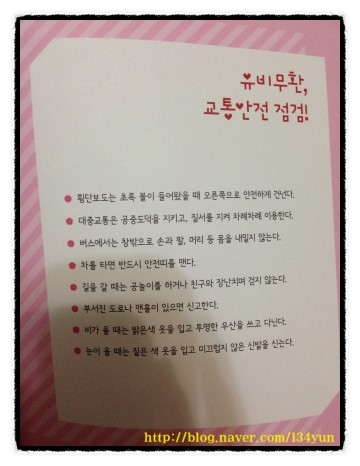 유비무환,
교통안전 점검!
횡단보도는 초록 불이 들어왔을 때 오른쪽으로 안전하게 건넌다.
대중교통은 공중도덕을 지키고, 질서를 지켜 차례차례 이용한다.
버스에서는 창밖으로 손과 팔, 머리 등 몸을 내밀지 않는다.
차를 타면 반드시 안전띠를 맨다.
길을 갈 때는 공놀이를 하거나 친구와 장난치며 걷지 않는다.
부서진 도로나 맨홀이 있으면 신고한다.
비가 올 때는 밝은색 옷을 입고 투명한 우산을 쓰고 다닌다.
눈이 올 때는 짙은 색 옷을 입고 미끄럽지 않은 신발을 신는다.
http://blog.naver.com/134yun